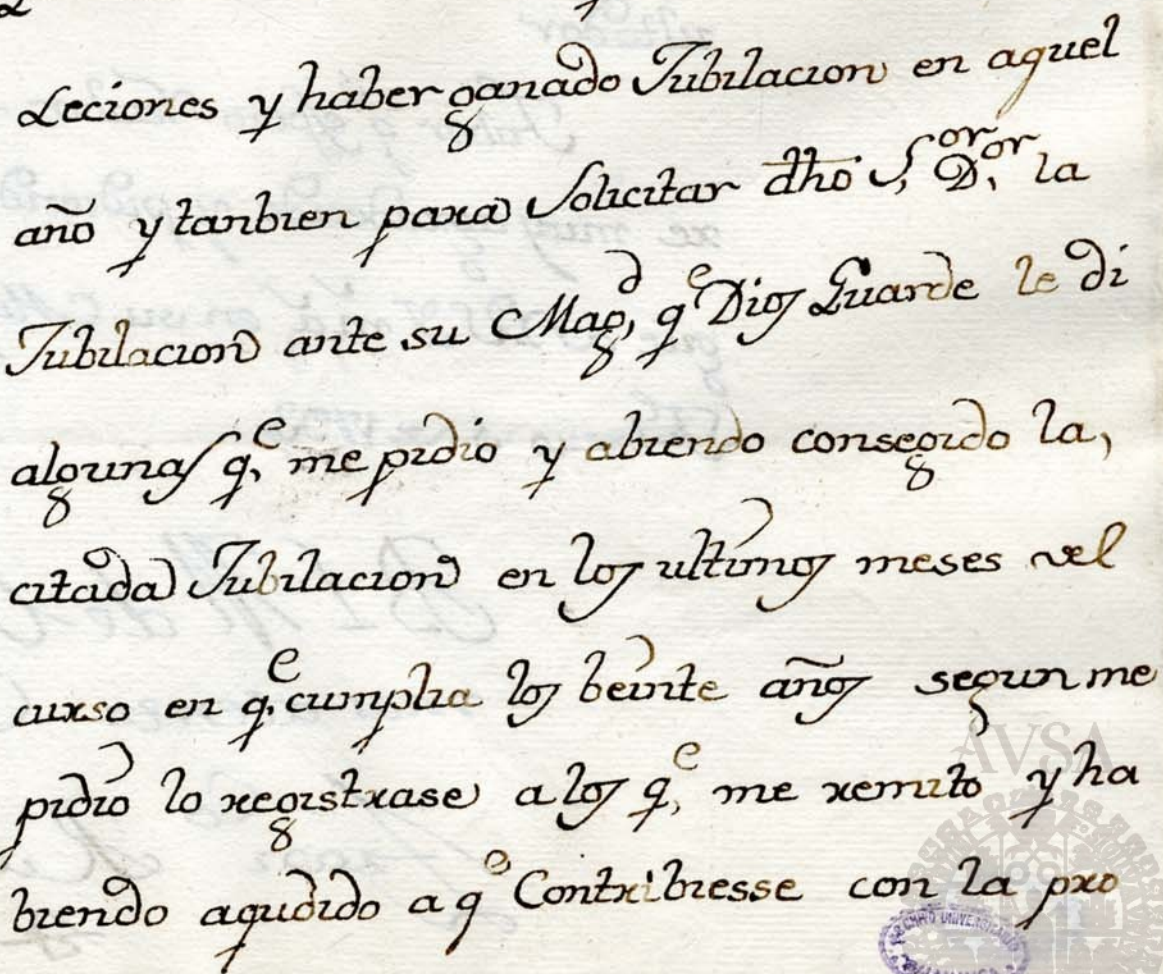 Leciones y haber ganado Jubilacion en aquel
año y tanbien para Solicitar dho S.or D.or la
Jubilacion ante su Mag.d q.e Dios Guarde le di
algunas q.e me pidio y abiendo consegido la,
citada Jubilacion en los ultimos meses del
curso en q.e cumplia los beinte años segun me
pidio lo registrase a los q.e me remito y ha
biendo aqudido a q.e Contribiesse con la pro
AVSA